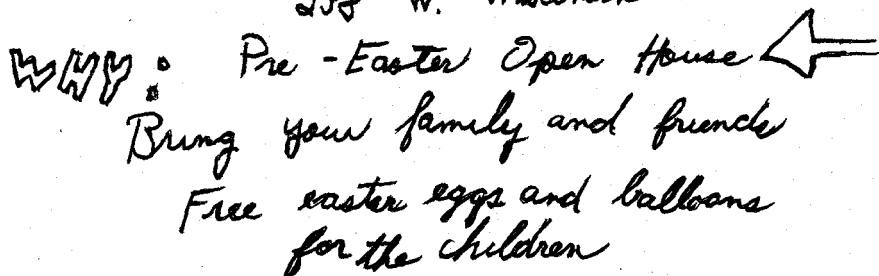 W.
WHY: Pre-Easter Open House
Bring your family and friends
Free easter eggs and balloons
for the children